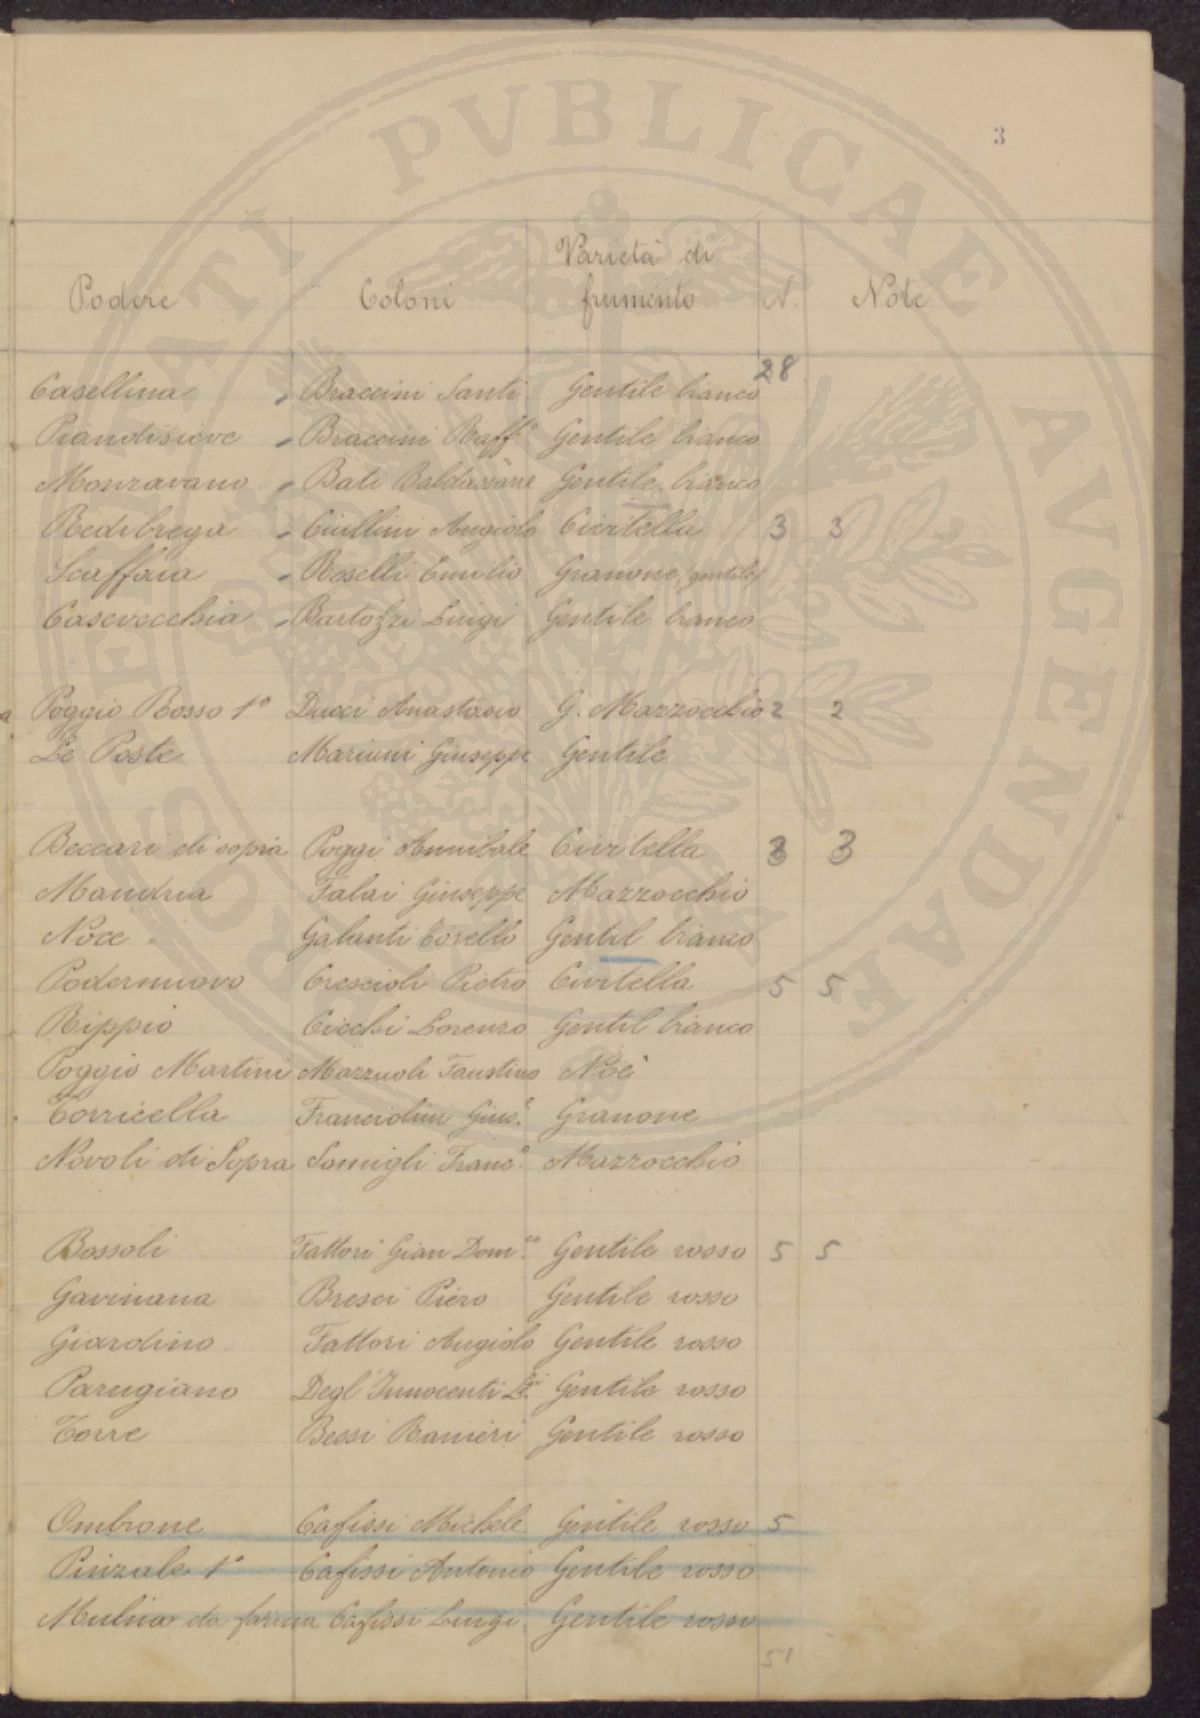 3
Varietà di
Podere Coloni frumento N. Note
28
Casellina Braccini Santi Gentile bianco
Piandisieve Braccini Raff.o Gentile bianco
Monzavano Bati Baldassarre Gentile bianco
Redibrega Ciullini Angiolo Civitella 3 3
Scaffaia Roselli Emilio Granone gentile
Casevecchia Bartolozzi Luigi Gentile bianco
Poggio Rosso 1° Ducci Anastasio G. Mazzocchio 2 2
Le Poste Mariani Giuseppe Gentile
Beccari di sopra Poggi Annibale Civitella 3 3
Mandria Falai Giuseppe Mazzocchio
Noce Galanti Torello Gentil bianco
Podernuovo Crescioli Pietro Civitella 5 5
Rippio Cicchi Lorenzo Gentil bianco
Poggio Martini Mazzuoli Faustino Noè
Torricella Franciolini Gius.e Granone
Novoli di Sopra Somigli Franc.o Mazzocchio
Bossoli Fattori Gian Dom.co Gentile rosso 5 5
Gavinana Bresci Piero Gentile rosso
Giardino Fattori Angiolo Gentile rosso
Parugiano Degl'Innocenti Gentile rosso
Torre Bessi Ranieri Gentile rosso
Ombrone Cafissi Michele Gentile rosso 5
Pinzale 1° Cafissi Antonio Gentile rosso
Mulino da farina Cafissi Luigi Gentile rosso
51
PROSPERITATI PVBLICAE AVGENDAE